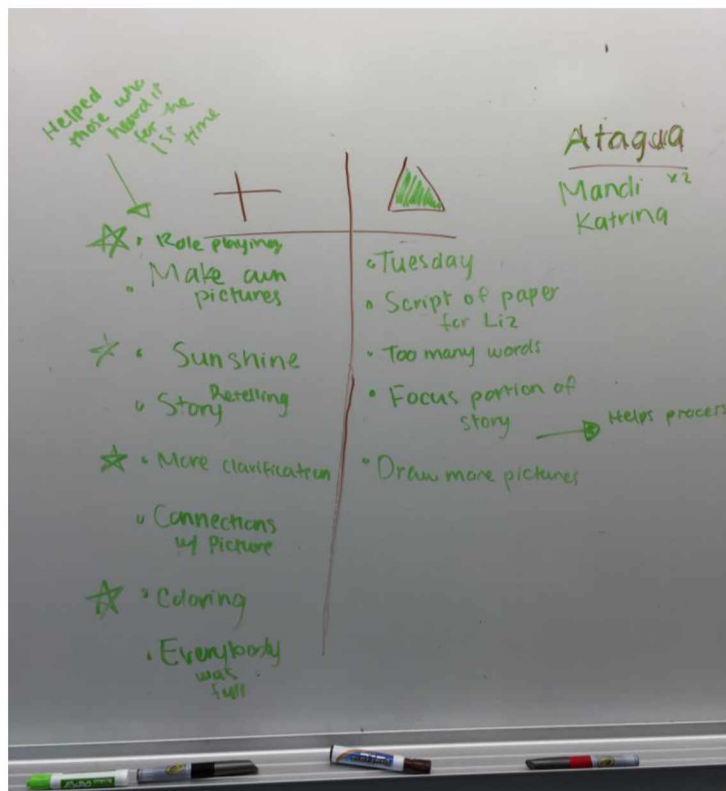 Helped
those who
heard it
for the
1st
time
+
Role playing
Make own
pictures
Sunshine
Story Retelling
More clarification
Connections
w/ Picture
Coloring
Everybody
was
full
Tuesday
Script of paper
for Liz
Too many words
Focus portion of
story
Helps process
Draw more pictures
Atagwa
Mandi x2
Katrina